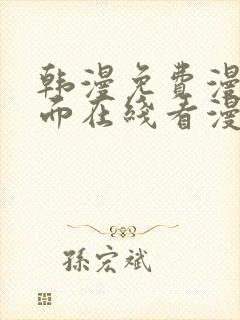 韩漫免费漫
而在线看漫
孫宏斌